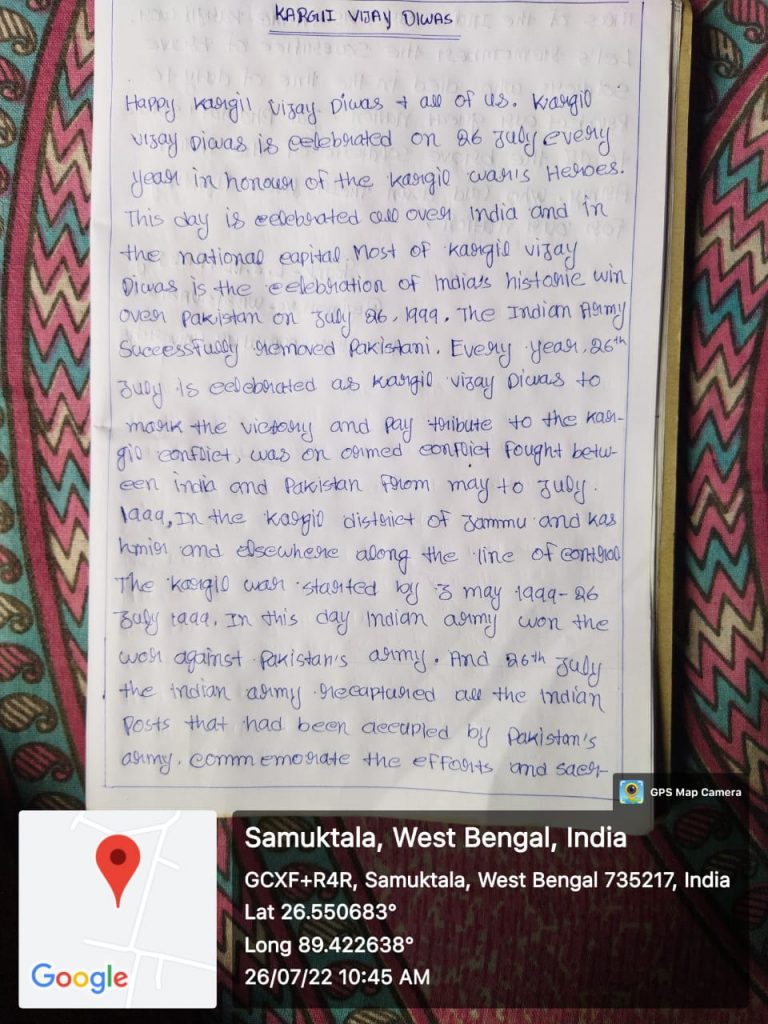 KARGIl VIJAY DIWAS
Happy Kargil Vijay Diwas t all of us. Kargil
Vijay Diwas is celebrated on 26 July every
year in honour of the Kargil war's Heroes.
This day is celebrated all over India and in
the national capital. Most of Kargil Vijay
Diwas is the celebration of India's historic win
over Pakistan on July 26, 1999. The Indian Army
Successfully removed Pakistani. Every year, 26th
July is celebrated as Kargil Vijay Diwas to
mark the victory and pay tribute to the Kar-
gil conflict, was on ormed conflict fought betw-
een india and Pakistan from may to July.
1999, In the Kargil district of Jammu and Kas
hmir and elsewhere along the line of control
The Kargil war started by 3 may 1999-26
July 1999. In this day Indian army won the
war against Pakistan's army. And 26th July
the Indian army recaptured all the Indian
Posts that had been accupled by Pakistan's
army. commemorate the efforts and sacr-
GPS Map Camera
Samuktala, West Bengal, India
GCXF+R4R, Samuktala, West Bengal 735217, India
Lat 26.550683°
Long 89.422638°
26/07/22 10:45 AM
Google